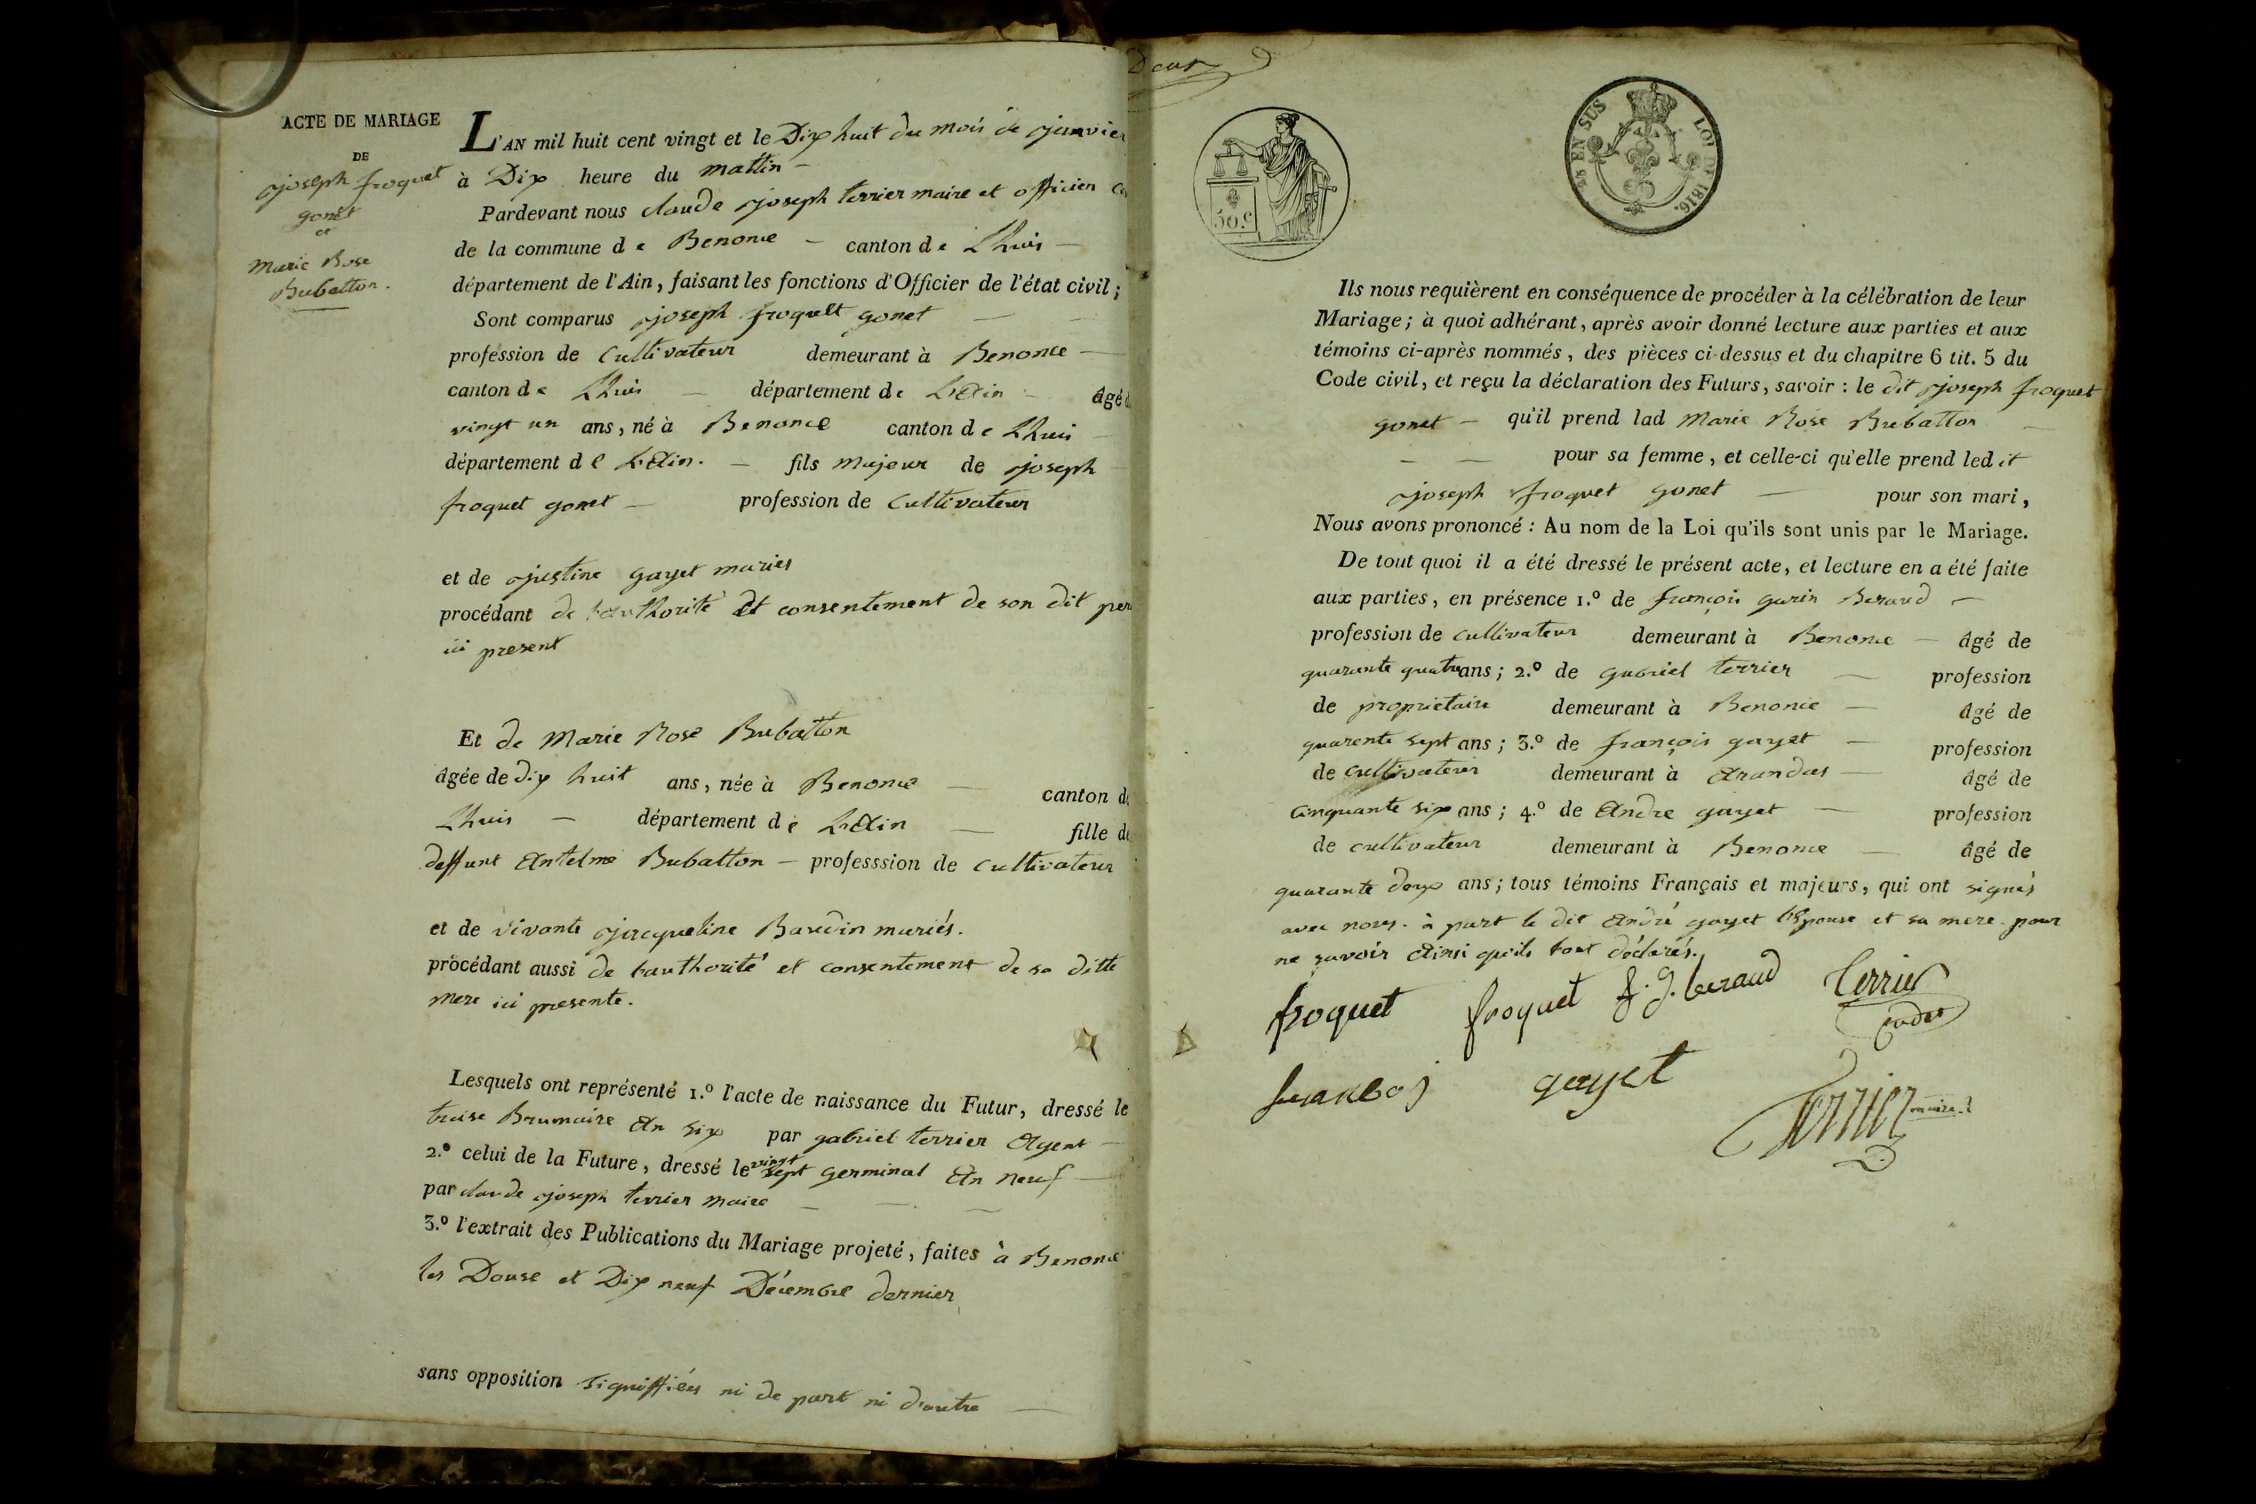 ACTE DE MARIAGE
DE
joseph froquet
gonet
et
Marie Rose
Bubatton.
L'AN mil huit cent vingt et le Dix huit du mois de janvier
à Dix heure du mattin
Pardevant nous claude joseph terrier maire et officier
de la commune de Benonce canton de Lhuis
département de l'Ain, faisant les fonctions d'Officier de l'état civil;
Sont comparus joseph froquet gonet
profession de Cultivateur demeurant à Benonce
canton de Lhuis département de L'Ain âgé
vingt un ans, né à Benonce canton de Lhuis
département de L'Ain. fils majeur de joseph
froquet gonet profession de Cultivateur
et de justine gayet mariés
procédant de l'authorité et consentement de son dit
ici present
Et de Marie Rose Bubatton
âgée de dix huit ans, née à Benonce canton
Lhuis département de L'Ain fille
deffunt Antelme Bubatton profession de cultivateur
et de vivante jacqueline Baudin mariés.
procédant aussi de l'authorité et consentement de sa ditte
mere ici presente.
Lesquels ont représenté 1.º l'acte de naissance du Futur, dressé le
treise Brumaire An six par gabriel terrier Agent
2.º celui de la Future, dressé le vingt sept germinal An neuf
par claude joseph terrier maire
3.º l'extrait des Publications du Mariage projeté, faites à Benonce
les Douse et Dix neuf Décembre dernier
sans opposition signiffiées ni de part ni d'autre
Deux
50.c
25 EN SUS
LOI DE 1816.
Ils nous requièrent en conséquence de procéder à la célébration de leur
Mariage; à quoi adhérant, après avoir donné lecture aux parties et aux
témoins ci-après nommés, des pièces ci-dessus et du chapitre 6 tit. 5 du
Code civil, et reçu la déclaration des Futurs, savoir: le dit joseph froquet
gonet qu'il prend lad Marie Rose Bubatton
pour sa femme, et celle-ci qu'elle prend ledit
joseph froquet gonet pour son mari,
Nous avons prononcé: Au nom de la Loi qu'ils sont unis par le Mariage.
De tout quoi il a été dressé le présent acte, et lecture en a été faite
aux parties, en présence 1.º de françois garin Beraud
profession de cultivateur demeurant à Benonce âgé de
quarante quatre ans; 2.º de gabriel terrier profession
de proprietaire demeurant à Benonce âgé de
quarente sept ans; 3.º de françois gayet profession
de cultivateur demeurant à Arandas âgé de
cinquante six ans; 4.º de Andre gayet profession
de cultivateur demeurant à Benonce âgé de
quarante deux ans; tous témoins Français et majeurs, qui ont signés
avec nous. à part le dit André gayet l'Epouse et sa mere pour
ne savoir Ainsi qu'ils l'ont déclarés.
froquet froquet f. g. beraud Terrier
cadet
francoj gayet Terrier maire